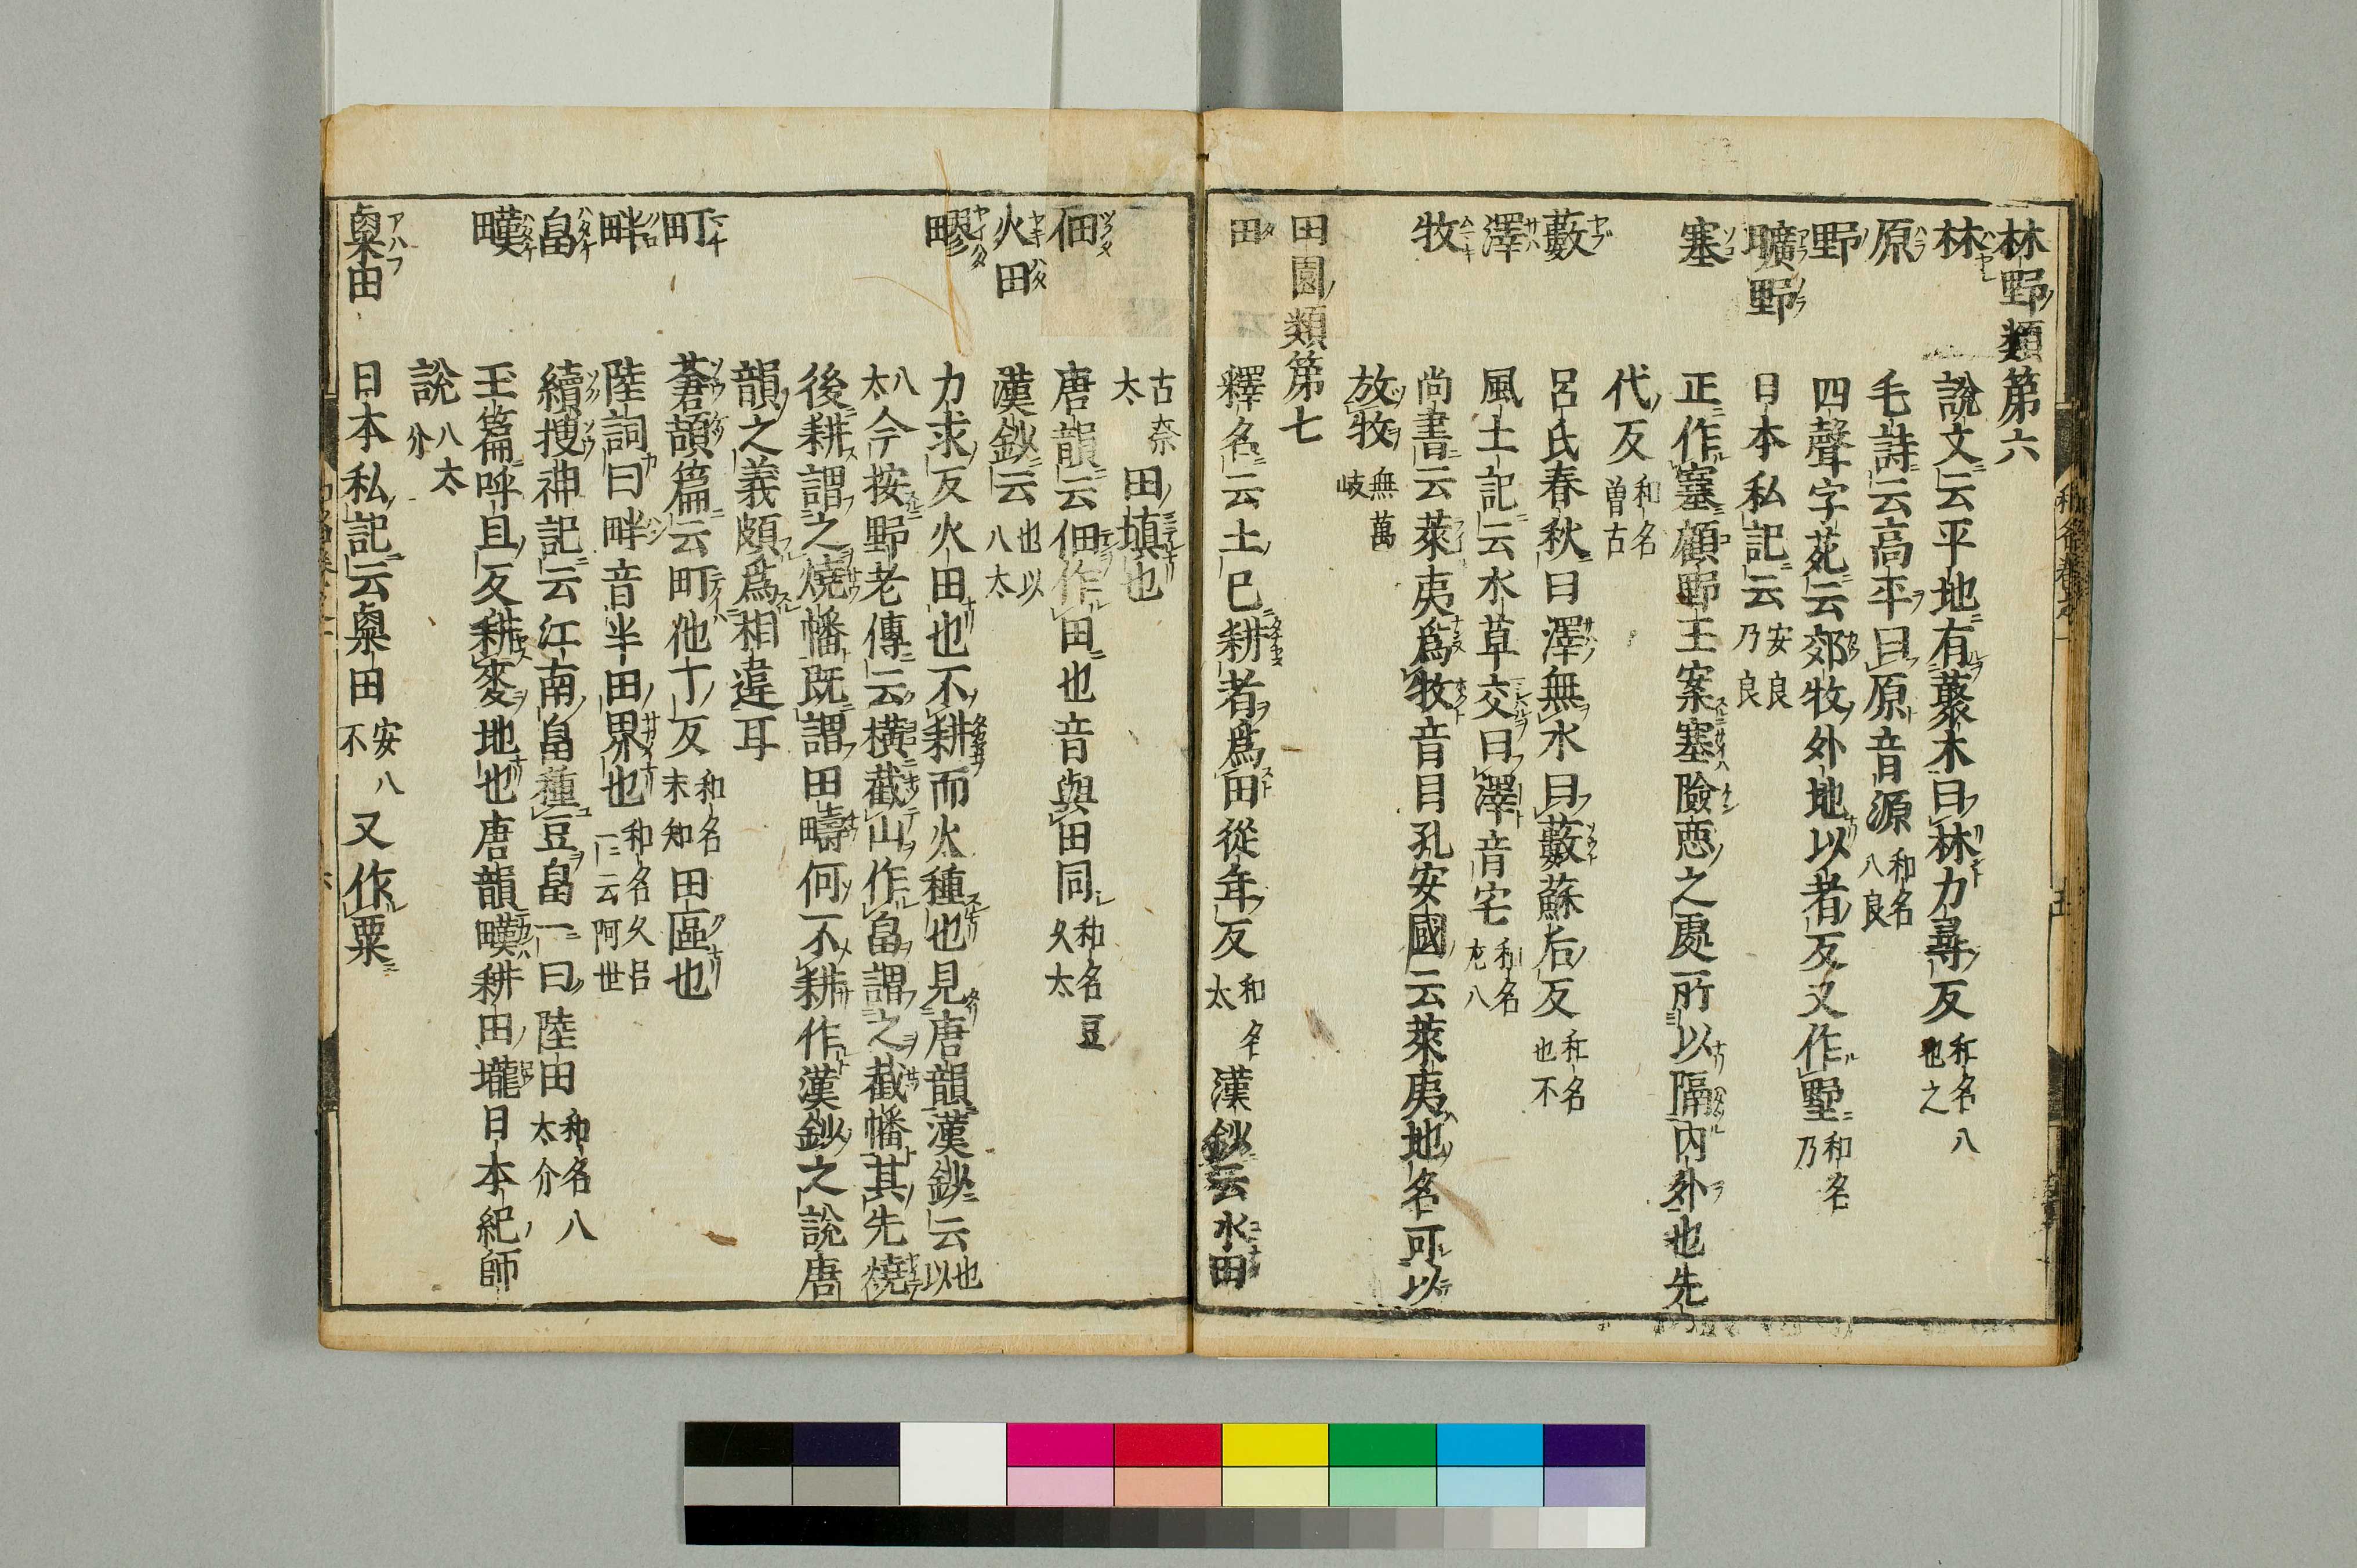 林野類第六
林 說文云平地有藂木曰林力尋反 和名八也之
原 毛詩云高平曰原音源 和名八良
野 四聲字苑云郊牧外地以者反又作墅 和名乃
曠野 日本私記云 安良乃良
塞 正作塞顧野王案塞險惡之處所以隔内外也先
代反 和名曽古
藪 呂氏春秋曰澤無水曰藪蘇后反 和名也不
澤 風土記云水草交曰澤音宅 和名左八
牧 尚書云萊夷爲牧音目孔安國云萊夷地名可以
放牧 無萬岐
田園類第七
田 釋名云土已耕者爲田從年反 和名太 漢鈔云水田
古奈太 田填也
佃 唐韻云佃作田也音與田同 和名豆久太
火田 漢鈔云 也以八太
疁 力求反火田也不耕而火種也見唐韻漢鈔云 也以
八太 今按野老傳云横截山作畠謂之截幡其先燒
後耕謂之燒幡既謂田疇何不耕作漢鈔之說唐
韻之義頗爲相違耳
町 蒼頡篇云町他丁反 和名末知 田區也
畔 陸詞曰畔音半田界也 和名久呂一云阿世
畠 續搜神記云江南畠種豆畠一曰陸田 和名八太介
暵 玉篇呼旦反耕麥地也唐韻暵耕田壠日本紀師
說 八太介
粟田 日本私記云粟田 安八不 又作粟